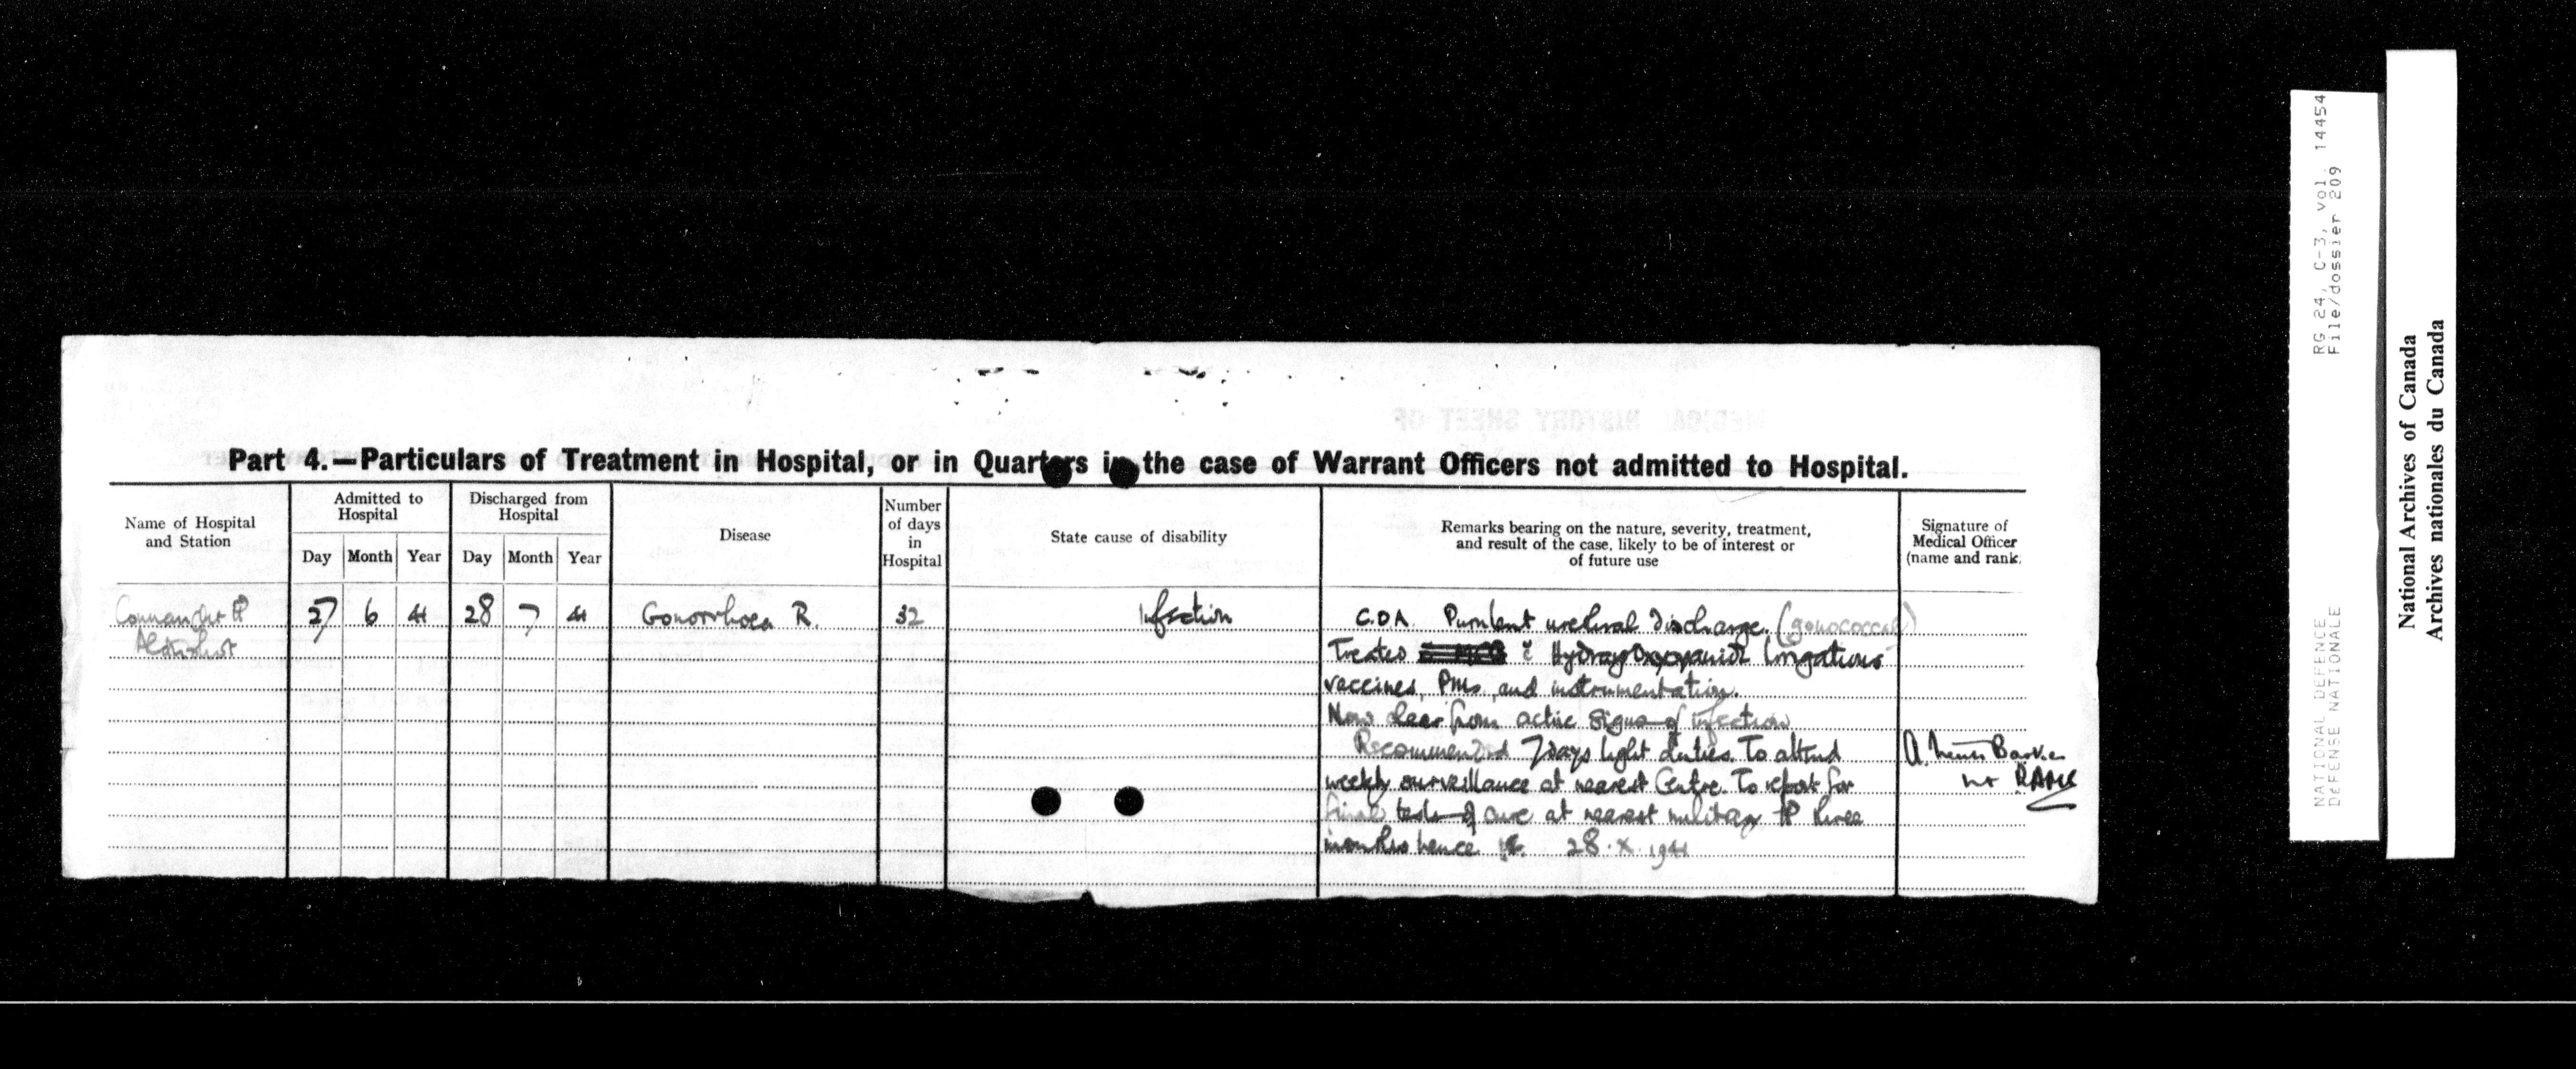 Part 4.—Particulars of Treatment in Hospital, or in Quarters in the case of Warrant Officers not admitted to Hospital.
Name of Hospital
and Station
Admitted to
Hospital
Day Month Year
Discharged from
Hospital
Day Month Year
Disease
Number
of days
in
Hospital
State cause of disability
Remarks bearing on the nature, severity, treatment,
and result of the case, likely to be of interest or
of future use
Signature of
Medical Officer
(name and rank.
Connaught H
Aldershot
27 6 41 28 7 41 Gonorrhoea R. 32 Infection
C.O.A. Purulent urethral discharge. (gonococcal)
Treated c Hydrarg Oxycyanide Irrigations
vaccines, PMs, and instrumentation.
Now clear from active signs of infection
Recommended 7 days light duties. To attend
weekly surveillance at nearest Centre. To report for
final tests of cure at nearest military H three
months hence 28.X.1941
A. Barker
RAMC
RG 24, C-3, vol. 14454
File/dossier 209
NATIONAL DEFENCE
DEFENSE NATIONALE
National Archives of Canada
Archives nationales du Canada